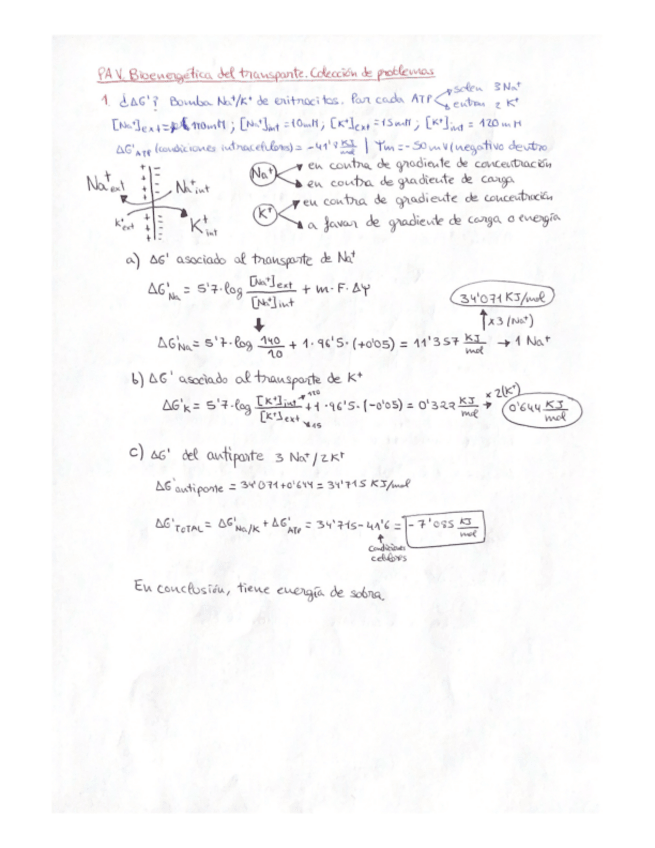 PA V. Bioenergética del transporte. Colección de problemas
1. ¿ΔG'? Bomba Na⁺/K⁺ de eritrocitos. Por cada ATP salen 3 Na⁺
entran 2 K⁺
[Na⁺]ext = 140mM ; [Na⁺]int = 10mM ; [K⁺]ext = 15mM ; [K⁺]int = 120mM
ΔG'ATP (condiciones intracelulares) = -41'8 KJ/mol | Ψm = -50mV (negativo dentro
Na⁺ext Na⁺int
K⁺ext K⁺int
Na⁺ en contra de gradiente de concentración
en contra de gradiente de carga
K⁺ en contra de gradiente de concentración
a favor de gradiente de carga o energía
a) ΔG' asociado al transporte de Na⁺
ΔG'Na = 5'7·log [Na⁺]ext/[Na⁺]int + m·F·ΔΨ
34'071 KJ/mol
x3 (Na⁺)
ΔG'Na = 5'7·log 140/10 + 1·96'5·(+0'05) = 11'357 KJ/mol → 1 Na⁺
b) ΔG' asociado al transporte de K⁺
ΔG'K = 5'7·log [K⁺]int→120/[K⁺]ext→15 + 1·96'5·(-0'05) = 0'322 KJ/mol x2(K⁺) → 0'644 KJ/mol
c) ΔG' del antiporte 3 Na⁺/2K⁺
ΔG'antiporte = 34'071+0'644 = 34'715 KJ/mol
ΔG'TOTAL = ΔG'Na/K + ΔG'ATP = 34'715-41'6 = -7'085 KJ/mol
Condiciones
celulares
En conclusión, tiene energía de sobra